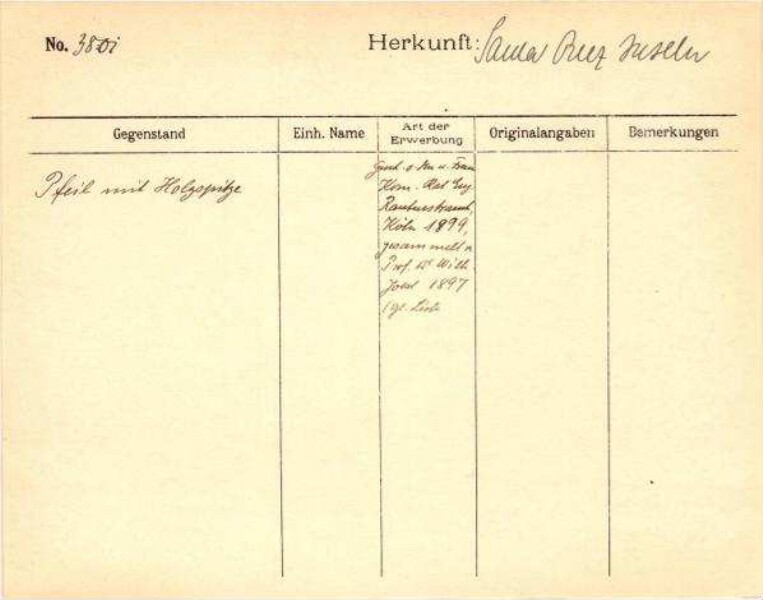 No. 380i
Herkunft: Santa Cruz Inseln
Gegenstand
Einh. Name
Art der
Erwerbung
Originalangaben
Bemerkungen
Pfeil mit Holzspitze
Gesch. v. Hn u. Frau
Kom. Rat Eug
Rautenstrauch,
Köln 1899,
gesammelt v.
Prof. Dr Wilh.
Joest 1897
Liste